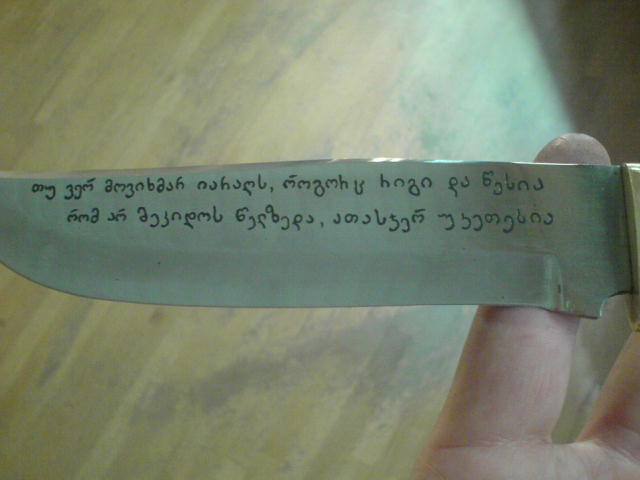 თუ ვერ მოვიხმარ იარაღს, როგორც რიგი და წესია
რომ არ მეკიდოს წელზედა, ათასჯერ უკეთესია